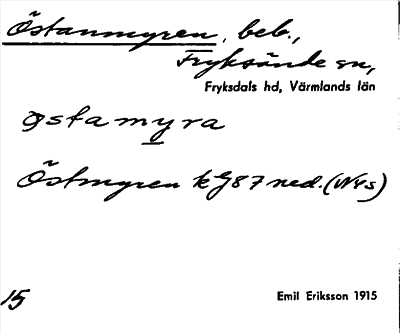 Östanmyren, beb.,
Fryksände sn,
Fryksdals hd, Värmlands län
østamyra
Östmyren kG87 ned. (NYs)
15
Emil Eriksson 1915